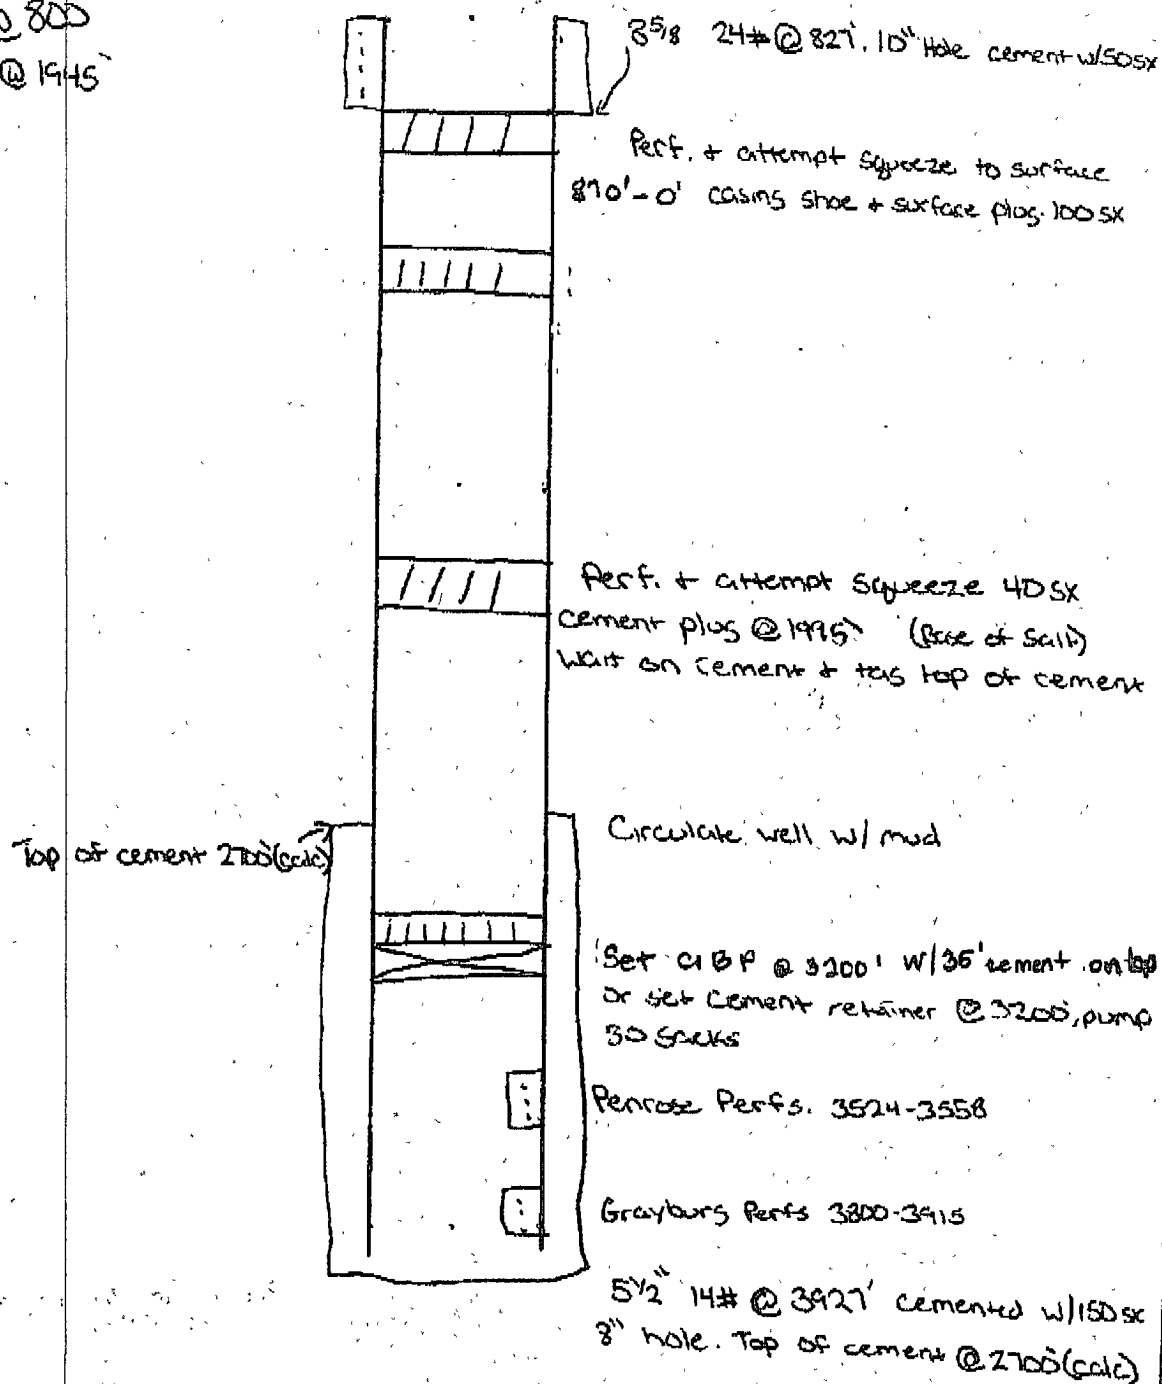 @ 800
@ 1945'
8 5/8 24# @ 827'. 10" Hole cement w/50sx
Perf. + attempt squeeze to surface
870'-0' casing shoe + surface plug. 100 sx
Perf. + attempt squeeze 40sx
cement plug @ 1995' (Base of Salt)
Wait on cement + tag top of cement
Circulate well w/ mud
Top of cement 2700'(calc)
Set CIBP @ 3200' w/35' cement on top
or set cement retainer @ 3200', pump
30 sacks
Penrose Perfs. 3524-3558
Grayburg Perfs 3800-3915
5 1/2" 14# @ 3927' cemented w/150 sx
8" hole. Top of cement @ 2700'(calc)